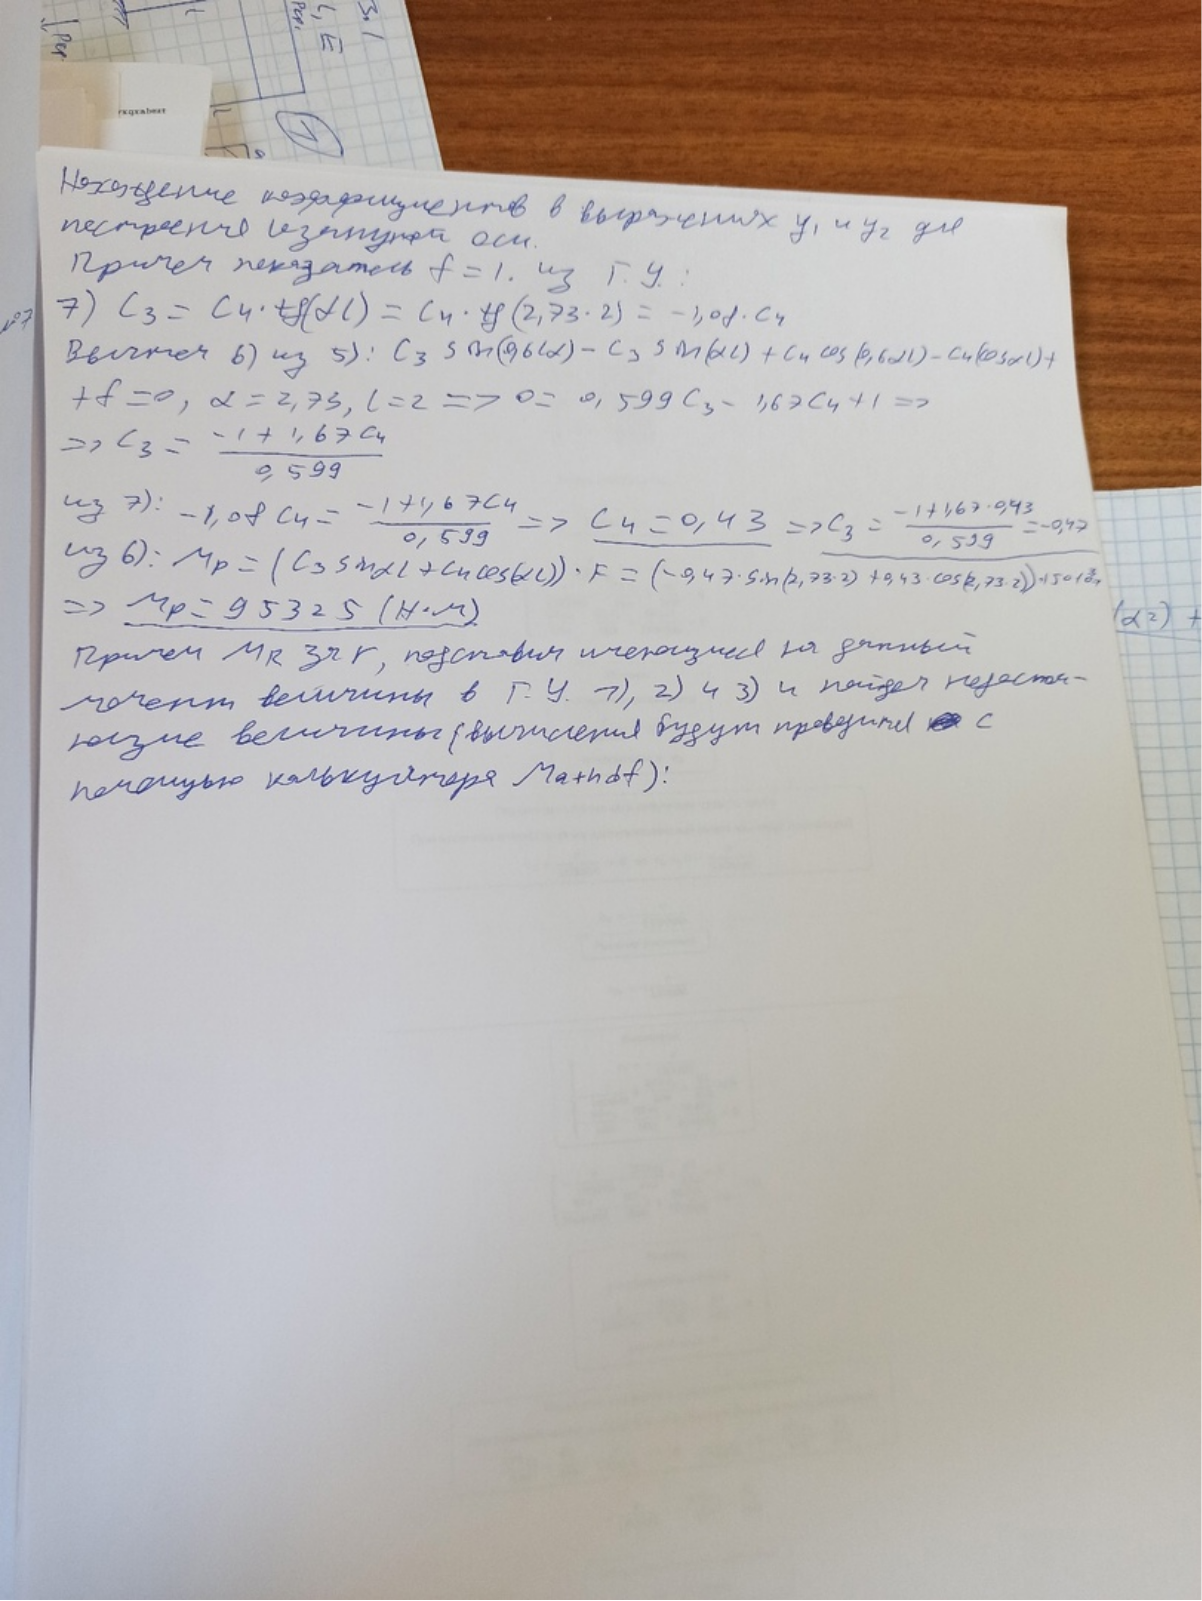 Нахождение коэффициентов в выражениях y₁ и y₂ для
построения изогнутой оси.
Примем показатель f = 1. из Г.У.:
7) C₃ = C₄·tg(αl) = C₄·tg(2,73·2) = -1,08·C₄
Вычтем 6) из 5): C₃ sin(0,6lα) - C₃ sin(αl) + C₄ cos(0,6αl) - C₄(cosαl) +
+ f = 0, α = 2,73, l = 2 => 0 = 0,599C₃ - 1,67C₄ + 1 =>
=> C₃ = (-1 + 1,67C₄)/0,599
из 7): -1,08C₄ = (-1+1,67C₄)/0,599 => C₄ = 0,43 => C₃ = (-1+1,67·0,43)/0,599 = -0,47
из 6): Mp = (C₃ sinαl + C₄cos(αl))·F = (-0,47·sin(2,73·2) + 0,43·cos(2,73·2))
=> Mp = 95325 (Н·м)
Примем MR за r, подставим имеющиеся на данный
момент величины в Г.У. 1), 2) и 3) и найдем недостаю-
ющие величины (вычисления будут проводится с
помощью калькулятора Mathdf):
№7
ЗN1
l, E
Pкр
1
(α2) +